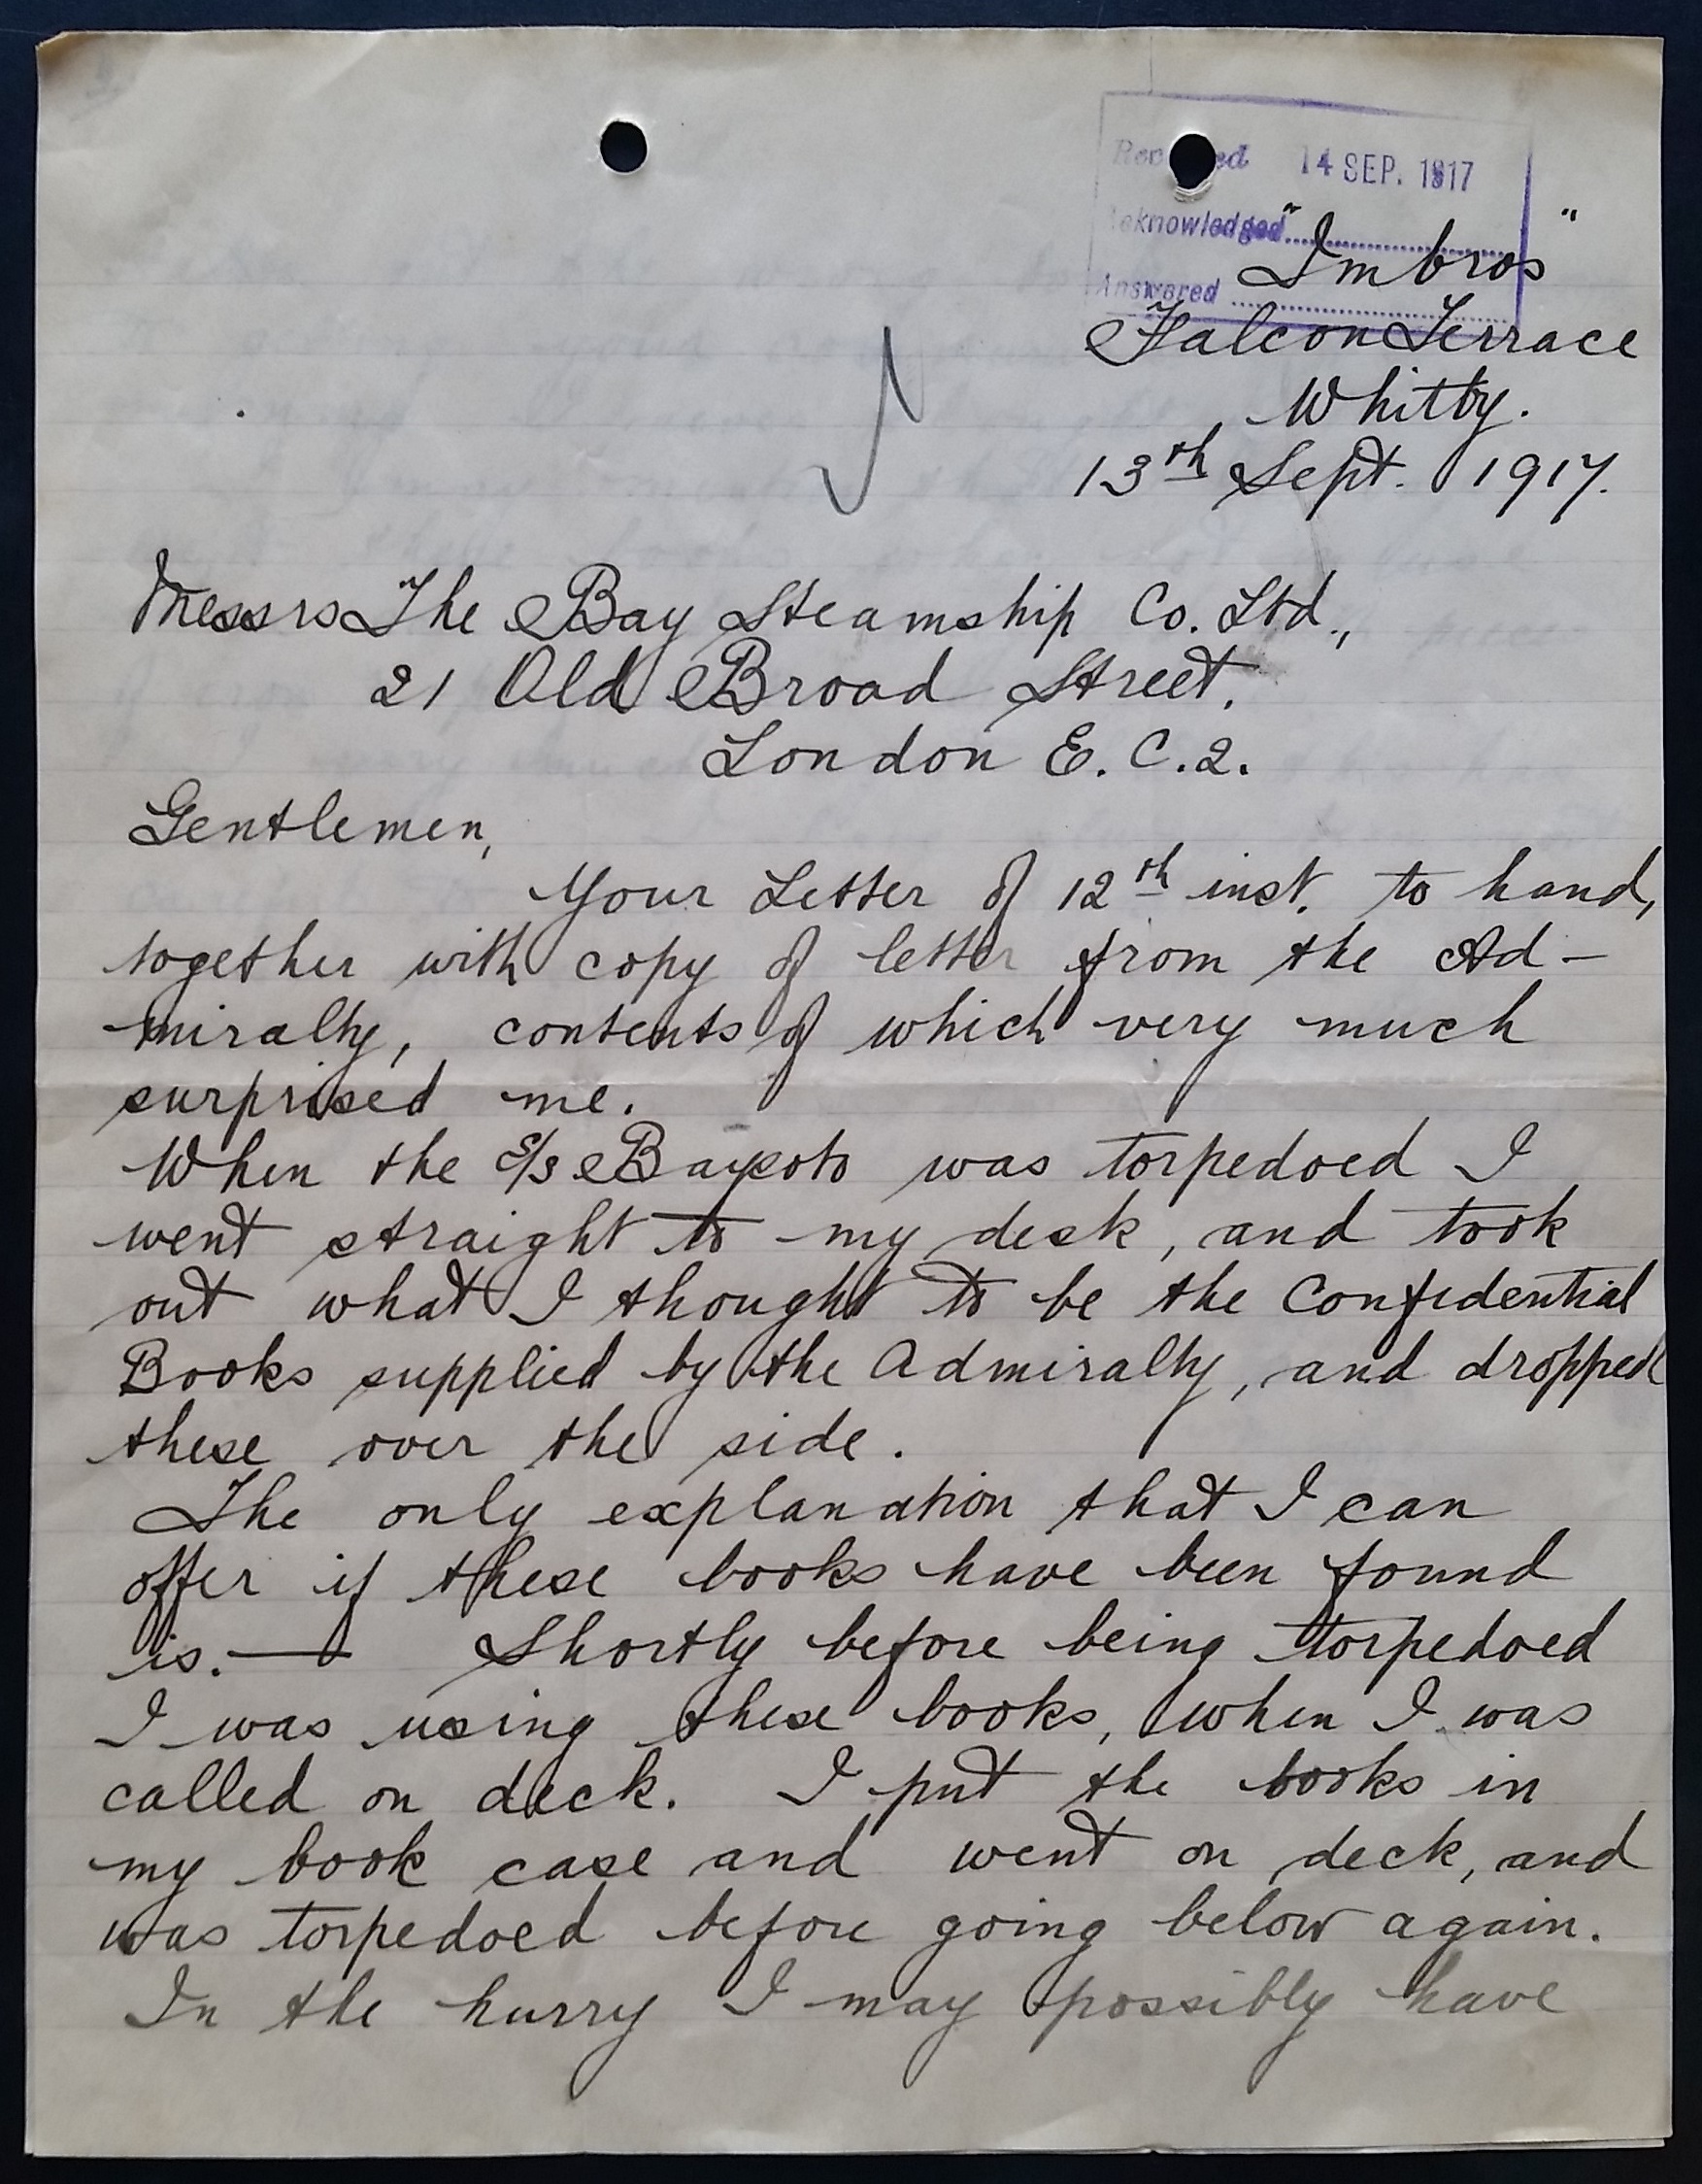 Received 14 SEP. 1917
Acknowledged
Answered
"Imbros"
Falcon Terrace
Whitby.
13th Sept. 1917.
Messrs The Bay Steamship Co. Ltd.,
21 Old Broad Street,
London E.C.2.
Gentlemen,
Your Letter of 12th inst. to hand,
together with copy of letter from the Ad-
miralty, contents of which very much
surprised me.
When the S/S Baysoto was torpedoed I
went straight to my desk, and took
out what I thought to be the Confidential
Books supplied by the Admiralty, and dropped
these over the side.
The only explanation that I can
offer if these books have been found
is. — Shortly before being torpedoed
I was using these books, when I was
called on deck. I put the books in
my book case and went on deck, and
was torpedoed before going below again.
In the hurry I may possibly have